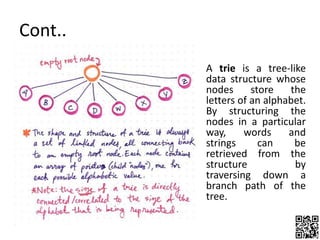 Cont..
empty root node
A
B
C
D
W
X
Y
Z
The shape and structure of a trie is always
a set of linked nodes, all connecting back
to an empty root node. Each node contains
an array of pointers (child "nodes"), one for
each possible alphabetic value.
*Note: the size of a trie is directly
connected/correlated to the size of the
alphabet that is being represented.
A trie is a tree-like
data structure whose
nodes store the
letters of an alphabet.
By structuring the
nodes in a particular
way, words and
strings can be
retrieved from the
structure by
traversing down a
branch path of the
tree.